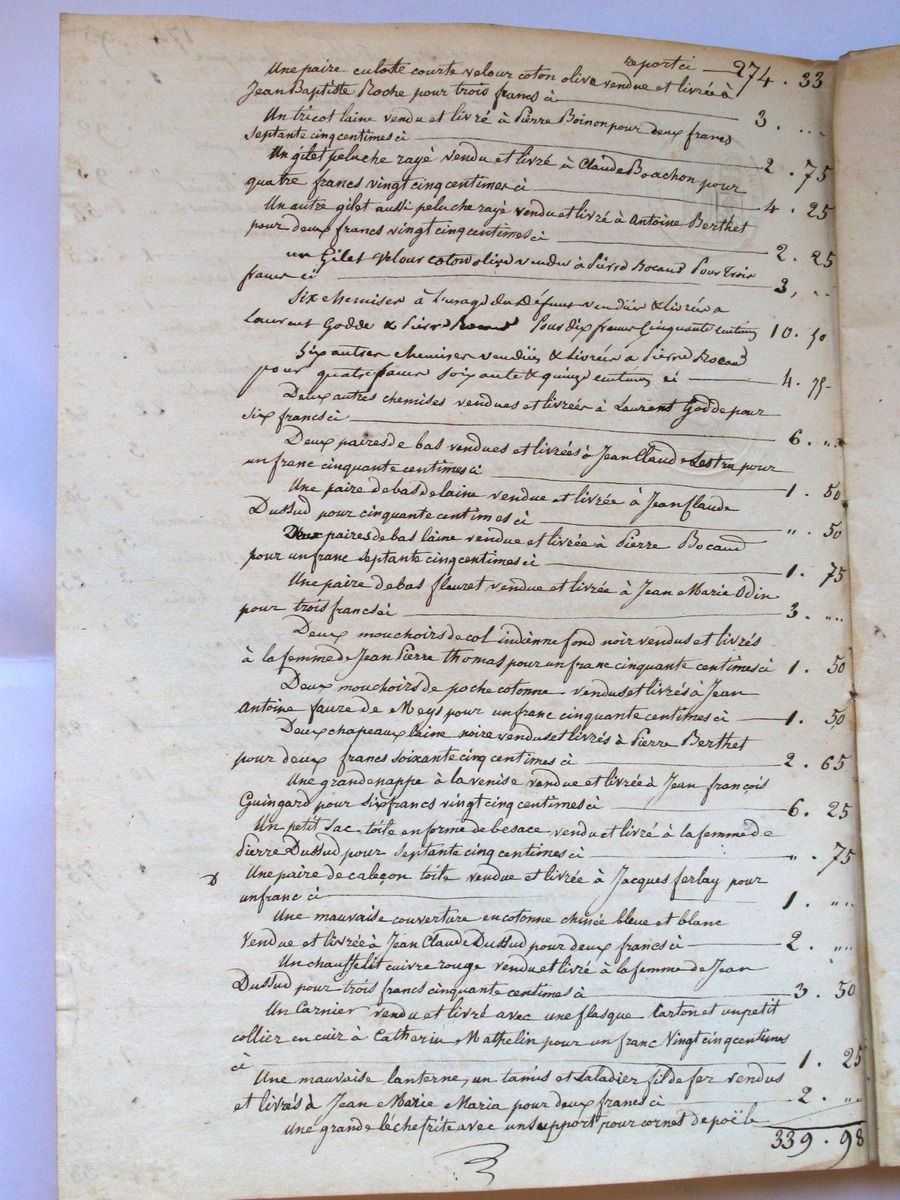 report ci 274 . 33
Une paire culotte courte velour coton olive vendue et livrée à
Jean Baptiste Roche pour trois francs ci 3 . ""
Un tricot laine vendu et livré à Pierre Boinon pour deux francs
septante cinq centimes ci 2 . 75
Un gilet peluche rayé vendu et livré à Claude Boachon pour
quatre francs vingt cinq centimes ci 4 . 25
Un autre gilet aussi peluche rayé vendu et livré à Antoine Berthet
pour deux francs vingt cinq centimes ci 2 . 25
un Gilet velour coton olive vendu à Pierre Bocaud pour trois
francs ci 3, ""
Six chemises à l'usage du Défunt vendües & livrées a
Laurent Godde & Pierre Bocaud pour dix francs cinquante centimes 10 . 50
Six autres chemises vendües & livrées a Pierre Bocaud
pour quatre francs soixante & quinze centimes ci 4 . 75
Deux autres chemises vendues et livrées à Laurent Godde pour
six francs ci 6 . ""
Deux paires de bas vendues et livrées à Jean Claude Lestra pour
un franc cinquante centimes ci 1 . 50
Une paire de bas de laine vendue et livrée à Jean Claude
Dussud pour cinquante centimes ci " . 50
Deux paires de bas laine vendue et livrée à Pierre Bocaud
pour un franc septante cinq centimes ci 1 . 75
Une paire de bas fleuret vendue et livrée à Jean Marie Odin
pour trois francs ci 3 . ""
Deux mouchoirs de col indienne fond noir vendus et livrés
à la femme de Jean Pierre Thomas pour un franc cinquante centimes ci 1 . 50
Deux mouchoirs de poche cotonne vendus et livrés à Jean
Antoine faure de Meys pour un franc cinquante centimes ci 1 . 50
Deux chapeaux laine noire vendus et livrés à Pierre Berthet
pour deux francs soixante cinq centimes ci 2 . 65
Une grande nappe à la venise vendue et livrée à Jean françois
Guingard pour six francs vingt cinq centimes ci 6 . 25
Un petit sac toile en forme de besace vendu et livré à la femme de
Pierre Dussud pour septante cinq centimes ci " . 75
Une paire de caleçon toile vendue et livrée à Jacques ferlay pour
un franc ci 1 . ""
Une mauvaise couverture en cotonne chinée bleue et blanc
vendue et livrée à Jean Claude Dussud pour deux francs ci 2 . ""
Un chauffe lit cuivre rouge vendu et livré à la femme de Jean
Dussud pour trois francs cinquante centimes ci 3 . 50
Un Carnier vendu et livré avec une flasque carton et un petit
collier en cuir à Catherin Mathelin pour un franc vingt cinq centimes
ci 1 . 25
Une mauvaise lanterne, un tamis et saladier fil de fer vendus
et livrés à Jean Marie Maria pour deux francs ci 2 . ""
une grande lèchefrite avec un support pour cornet de poële
339 . 98